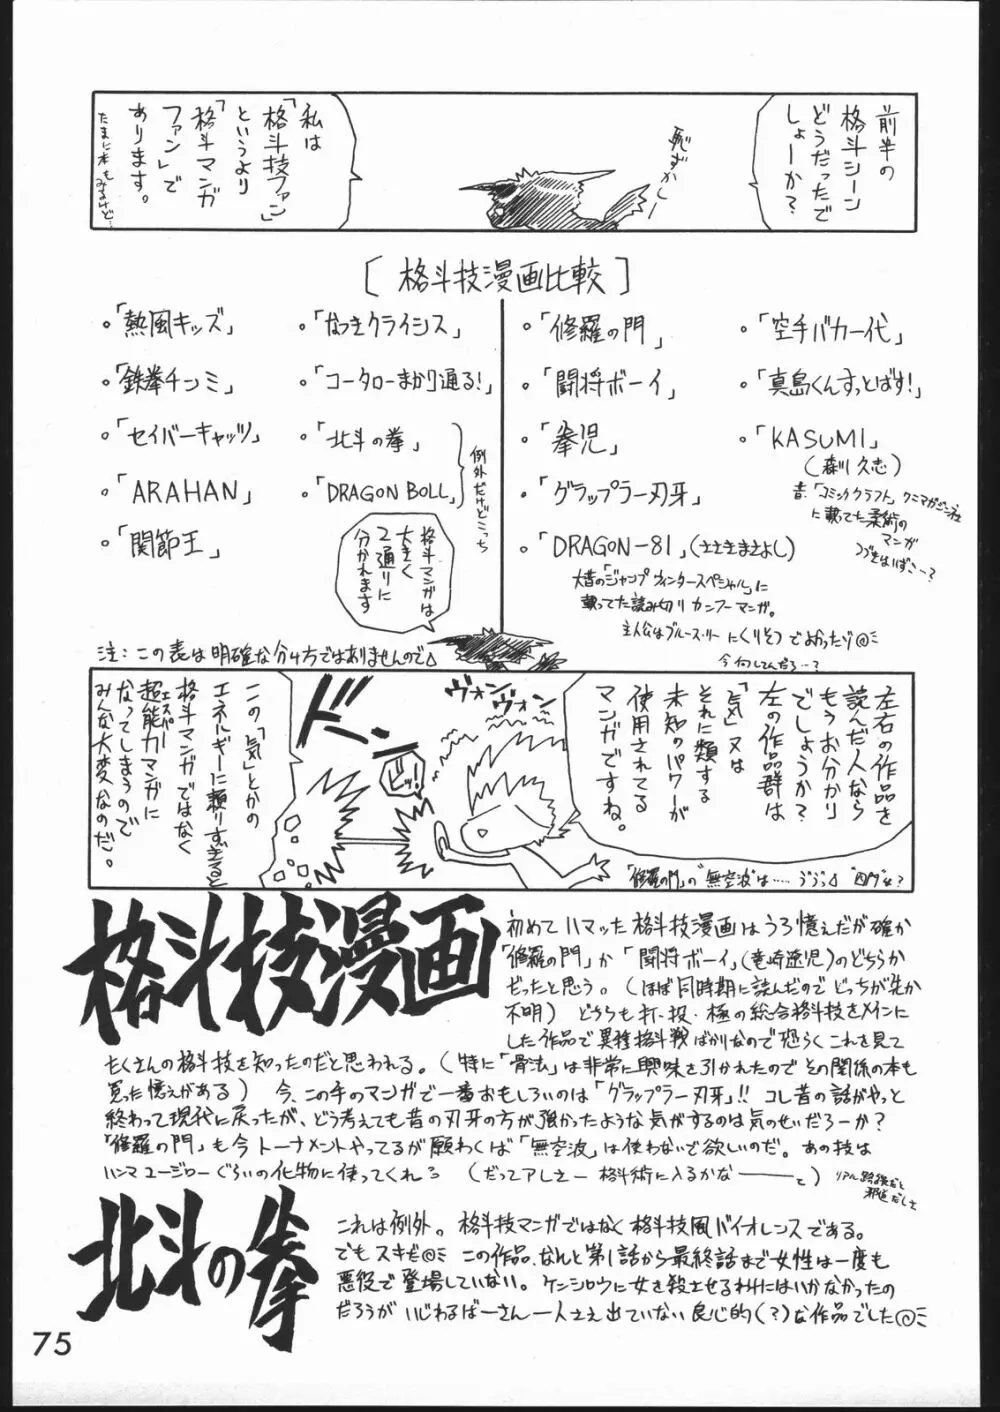 前半の
格斗シーン
どうだったで
しょーか？
恥ずかしー
私は
「格斗技ファン」
というより
「格斗マンガ
ファン」で
あります。
たまに本もみるけど…
［格斗技漫画比較］
。「熱風キッズ」
。「鉄拳チンミ」
。「セイバーキャッツ」
。「ARAHAN」
。「関節王」
。「なつきクライシス」
。「コータローまかり通る！」
。「北斗の拳」
。「DRAGON BOLL」
例外だけどこっち
。「修羅の門」
。「闘将ボーイ」
。「拳児」
。「グラップラー刃牙」
。「DRAGON-81」（ささきまさよし）
大昔の「ジャンプウィンタースペシャル」に
載ってた読み切りカンフーマンガ。
主人公はブルース・リーにくりそつでよかったゾ
今何してんだろ…？
。「空手バカ一代」
。「真島くんすっとばす！」
。「KASUMI」
（森川久志）
昔、「コミッククラフト」
に載ってた柔術の
マンガ
つづきはいずこ…？
格斗マンガは
大きく
2通りに
分かれます
注：この表は明確な分け方ではありませんので
左右の作品を
読んだ人なら
もうお分かり
でしょうか？
左の作品群は
「気」又は
それに類する
未知のパワーが
使用されてる
マンガですね。
「修羅の門」の“無空波”は……
ヴォン
ヴォン
ドン
この「気」とかの
エネルギーに頼りすぎると
格斗マンガではなく
超能力マンガに
エスパー
なってしまうので
みんな大変なのだ。
格斗技漫画
初めてハマッた格斗技漫画はうろ憶えだが確か
「修羅の門」か「闘将ボーイ」（竜崎遼児）のどちらか
だったと思う。（ほぼ同時期に読んだのでどっちが先か
不明）どちらも打・投・極の総合格斗技をメインに
した作品で異種格斗戦ばかりなので恐らくこれを見て
たくさんの格斗技を知ったのだと思われる。（特に「骨法」は非常に興味を引かれたのでその関係の本も
買った憶えがある）今、この手のマンガで一番おもしろいのは「グラップラー刃牙」！！コレ昔の話がやっと
終わって現代に戻ったが、どう考えても昔の刃牙の方が強かったような気がするのは気のせいだろーか？
「修羅の門」も今トーナメントやってるが願わくば「無空波」は使わないで欲しいのだ。あの技は
ハンマユージローぐらいの化物に使ってくれ（だってアレさー格斗術に入るかなーーーと）
リアル路線だと
邪道だしさ
北斗の拳
これは例外。格斗技マンガではなく格斗技風バイオレンスである。
でもスキだ この作品、なんと第1話から最終話まで女性は一度も
悪役で登場していない。ケンシロウに女を殺させるわけにはいかなかったの
だろうがいじわるばーさん一人さえ出ていない良心的（？）な作品でした
75